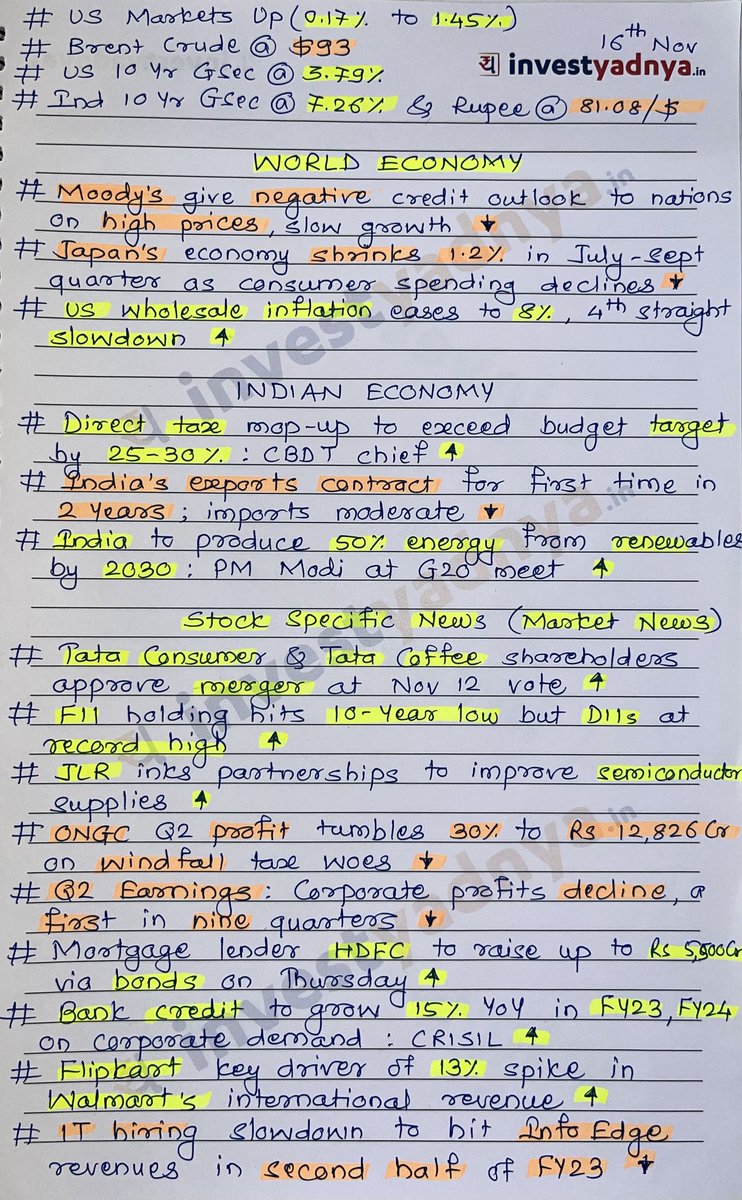 # US Markets Up (0.17% to 1.45%)
16th Nov
# Brent Crude @ $93
य investyadnya.in
# US 10 Yr GSec @ 3.79%
# Ind 10 Yr GSec @ 7.26% & Rupee @ 81.08/$
WORLD ECONOMY
# Moody's give negative credit outlook to nations
on high prices, slow growth ↓
# Japan's economy shrinks 1.2% in July-Sept
quarter as consumer spending declines ↓
# US wholesale inflation eases to 8%, 4th straight
slowdown ↑
INDIAN ECONOMY
# Direct tax mop-up to exceed budget target
by 25-30% : CBDT chief ↑
# India's exports contract for first time in
2 years ; imports moderate ↓
# India to produce 50% energy from renewables
by 2030 : PM Modi at G20 meet ↑
Stock Specific News (Market News)
# Tata Consumer & Tata Coffee shareholders
approve merger at Nov 12 vote ↑
# FII holding hits 10-year low but DIIs at
record high ↑
# JLR inks partnerships to improve semiconductor
supplies ↑
# ONGC Q2 profit tumbles 30% to Rs 12,826 Cr
on windfall tax woes ↓
# Q2 Earnings : Corporate profits decline, a
first in nine quarters ↓
# Mortgage lender HDFC to raise up to Rs 5,500Cr
via bonds on Thursday ↑
# Bank credit to grow 15% YoY in FY23, FY24
on corporate demand : CRISIL ↑
# Flipkart key driver of 13% spike in
Walmart's international revenue ↑
# IT hiring slowdown to hit Info Edge
revenues in second half of FY23 ↓